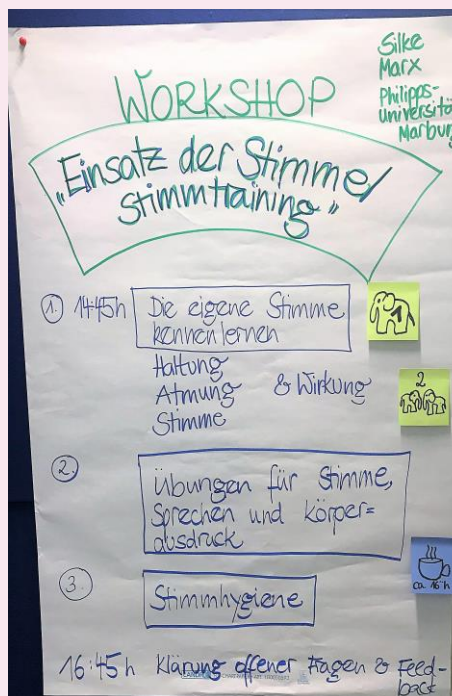 Silke
Marx
Philipps-
Universitä
Marburg
WORKSHOP
"Einsatz der Stimme/
Stimmtraining"
1. 14:45h Die eigene Stimme
kennenlernen
1
Haltung
Atmung & Wirkung
Stimme
2
2. Übungen für Stimme,
Sprechen und Körper=
ausdruck
ca. 16 h
3. Stimmhygiene
16:45h Klärung offener Fragen & Feed-
back